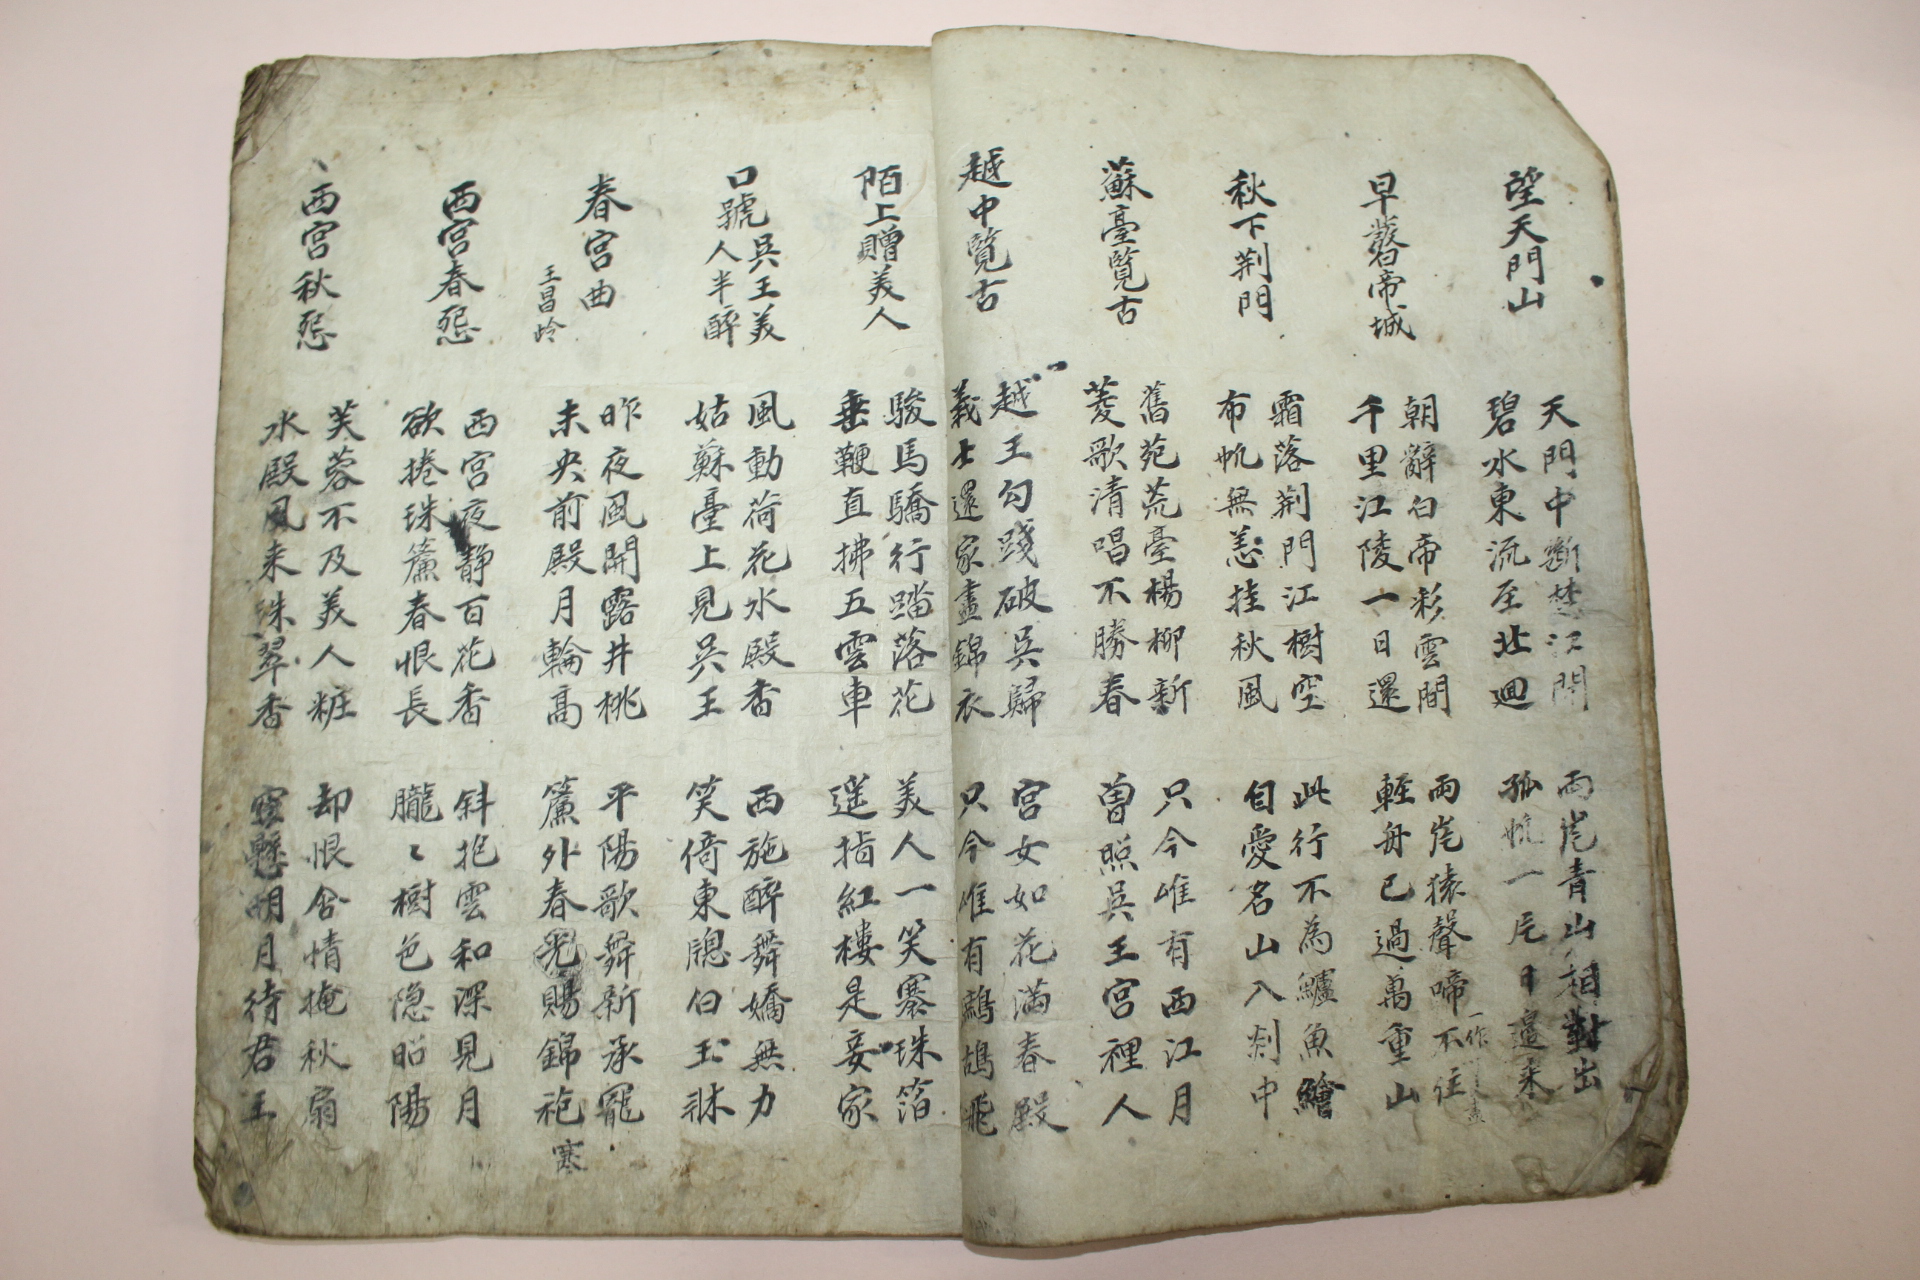 望天門山
天門中斷楚江開
碧水東流至北廻
兩崖青山相對出
孤帆一片日邊來
早發白帝城
朝辭白帝彩雲間
千里江陵一日還
兩崖猿聲啼不住
一作
輕舟已過萬重山
秋下荆門
霜落荆門江樹空
布帆無恙挂秋風
此行不為鱸魚鱠
自愛名山入剡中
蘇臺覽古
舊苑荒臺楊柳新
菱歌清唱不勝春
只今唯有西江月
曾照吳王宮裡人
越中覽古
越王勾踐破吳歸
義士還家盡錦衣
宮女如花滿春殿
只今唯有鷓鴣飛
陌上贈美人
駿馬驕行踏落花
垂鞭直拂五雲車
美人一笑褰珠箔
遥指紅樓是妾家
口號
吳王美
人半醉
風動荷花水殿香
姑蘇臺上見吳王
西施醉舞嬌無力
笑倚東牕白玉牀
春宮曲
王昌岭
昨夜風開露井桃
未央前殿月輪高
平陽歌舞新承寵
簾外春光賜錦袍
寒
西宮春怨
西宮夜静百花香
欲捲珠簾春恨長
斜抱雲和深見月
朧〻樹色隐昭陽
西宮秋怨
芙蓉不及美人粧
水殿風来珠翠香
却恨含情掩秋扇
空懸明月待君王